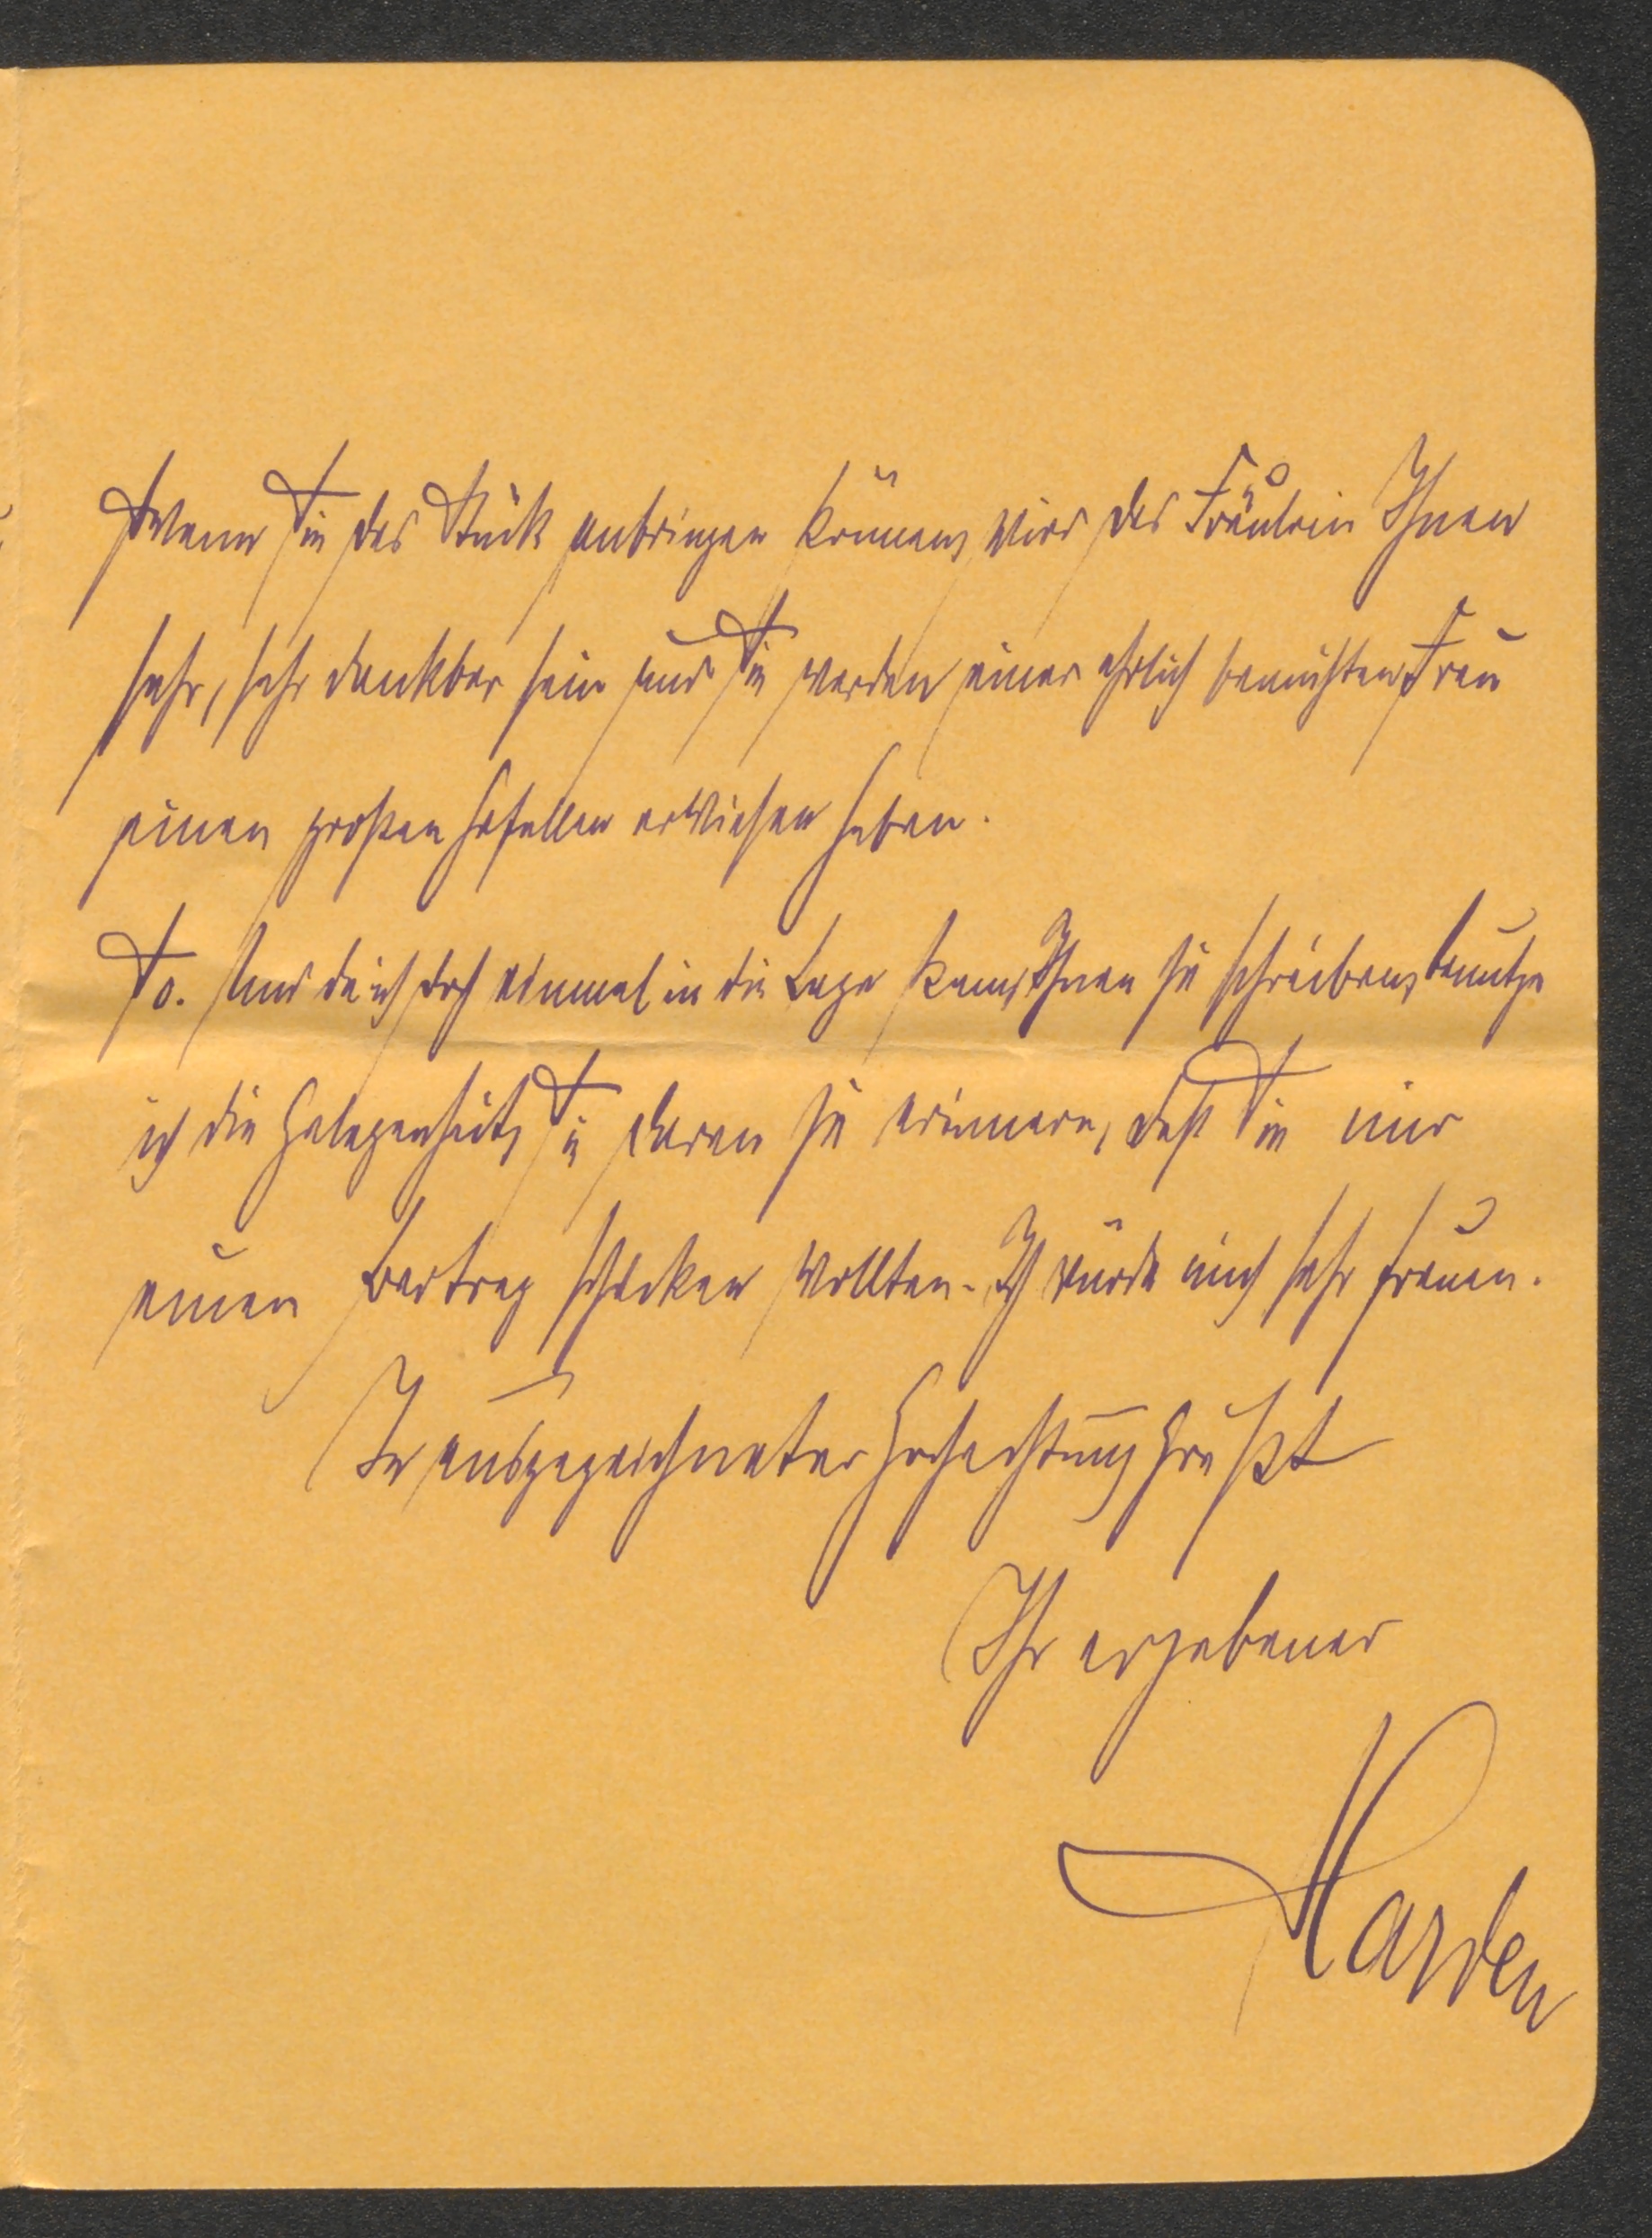 Wenn Sie das Stück anbringen können, wird das Fräulein Ihnen
sehr, sehr dankbar sein und Sie werden einer ehrlich bemühten Frau
einen großen Gefallen erwiesen haben.
So. Und da ich doch einmal in die Lage kam, Ihnen zu schreiben, benutze
ich die Gelegenheit, Sie daran zu erinnern, daß Sie mir
einen Beitrag schicken wollten. Ich würde mich sehr freuen.
In ausgezeichneter Hochachtung grüßt
Ihr ergebener
Harden